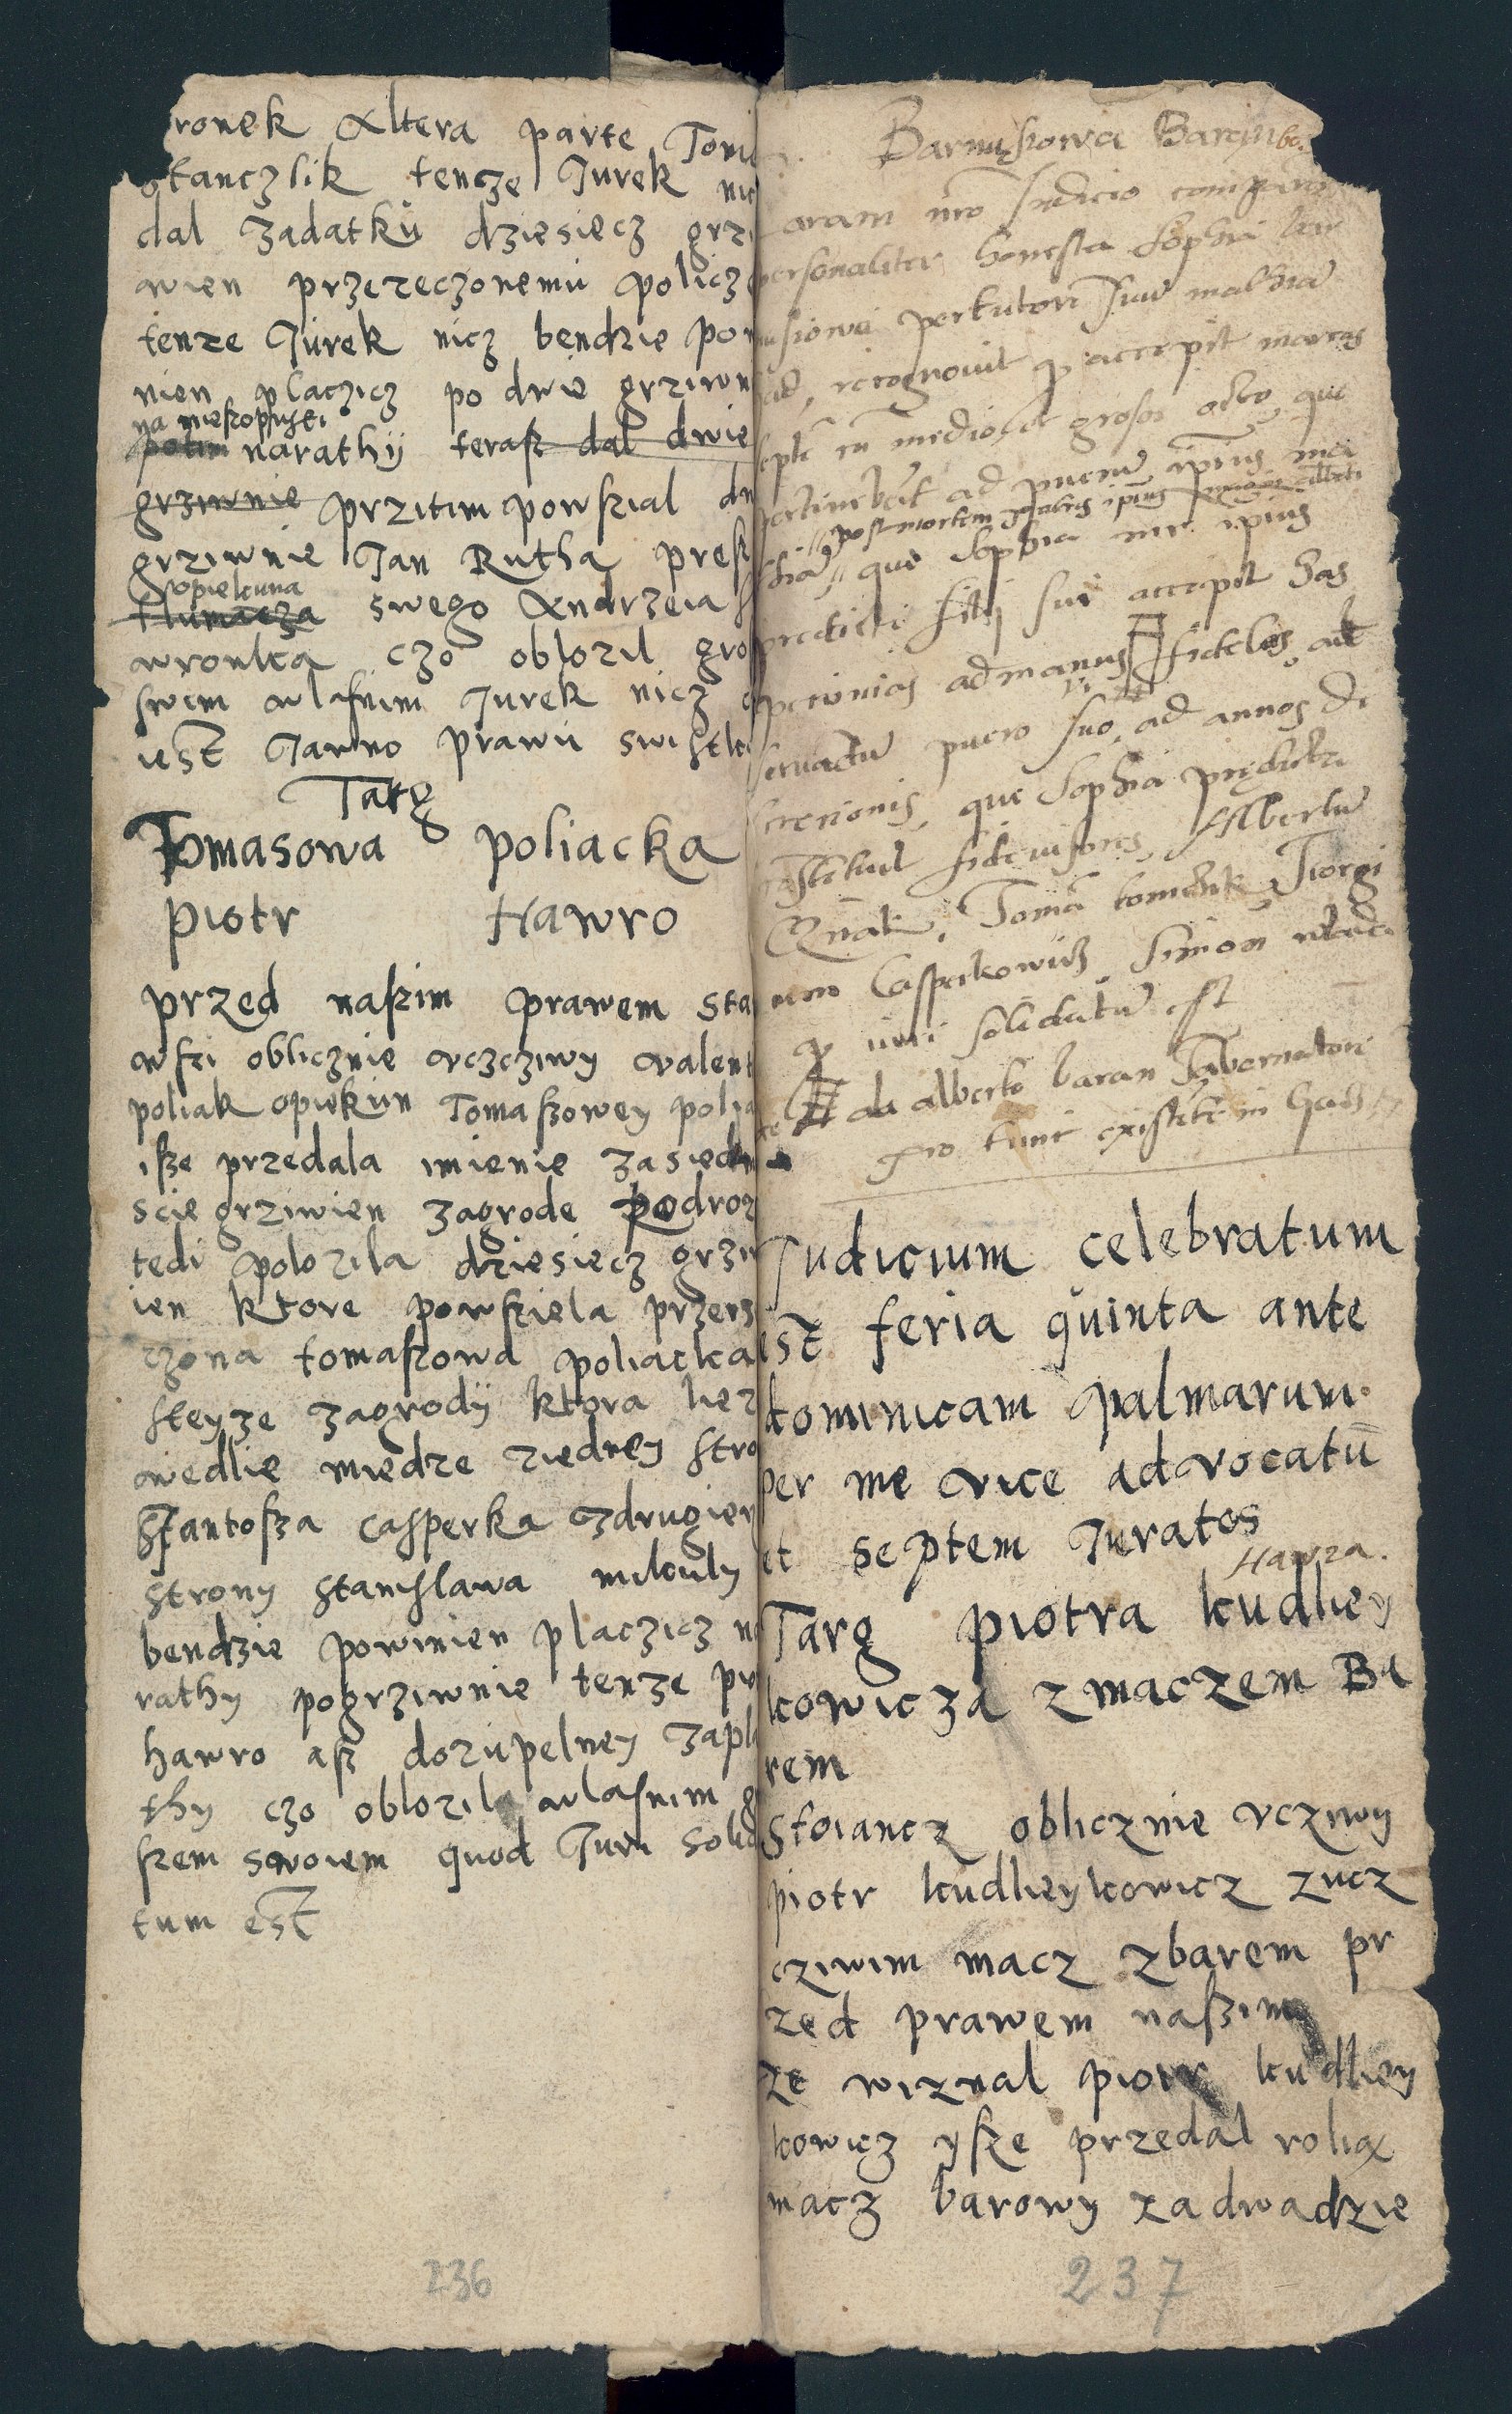 ronek Altera parte Tom
otanczlik tencze Jurek nic
dal zadatkŭ dziesiecz grzi
wien przereczonemŭ policz
tenze Jŭrek nicz bendzie pow
nien placzicz po dwie grziwn
na miesopusti
potim narathÿ terasz dal dwie
grziwnie przitim powszial dw
grziwnie Jan Rutha presz
opiekuna
tlumacza swego Andrzeia
wronka czo oblozil gro
swem wlasnim Jurek nicz
iest Jawno prawŭ swistk
Targ
Tomasowa poliacka
piotr Hawro
przed naszim prawem sta
wszi oblicznie vczcziwy valent
poliak opiekŭn Tomaszowey polia
isze przedala imienie zasiedm
scie grziwien zagrode podroz
tedi polozila dziesiecz grziw
ien ktore powsziela przerz
czona tomaszowa poliacka
steyze zagrodÿ ktora liez
wedlie miedze ziedney stro
Stantosza Casperka zdrugiey
strony stanislawa mikuly
bendzie powinien placzicz na
rathy pogrziwnie tenze pi
hawro asz dozupelney zapla
thy czo oblozila wlasnim g
szem swoiem quod Juri solid
tum est
236
Barnusowa
oram nro Judicio comparens
personaliter honesta Sophia bar
usiowa per tutorē suū mathiā
recognovit q accepit marcas
septē cū medio, et grosos octo, que
pertinebāt ad puerū ipius ma
post mortem patris ipius
thiā, que Sophia mr̄ ipius
predicti filij sui accepit has
pecunias ad manus fideles ad
servandū puero suo, ad annos di
screcionis, que Sophia prędicta
constituit fideiusores, Albertū
Gnāt, Tomā tomczik, Georgi
um Casperkowicz, Simon
q iuri solidatū est
ab alberto baran Gubernatore
pro tunc existēte in
Judicium celebratum
est feria quinta ante
dominicam palmarum
per me vice advocatū
et septem Juratos
Hawra.
Targ piotra kudliey
kowicza zmaczem Ba
rem
Stoiancz oblicznie vcziwy
piotr kudlieykowicz zucz
cziwim macz zbarem pr
zed prawem naszim
ze wiznal piotr kudliey
kowicz ysze przedal rolia
macz barowy zadwadzie
237